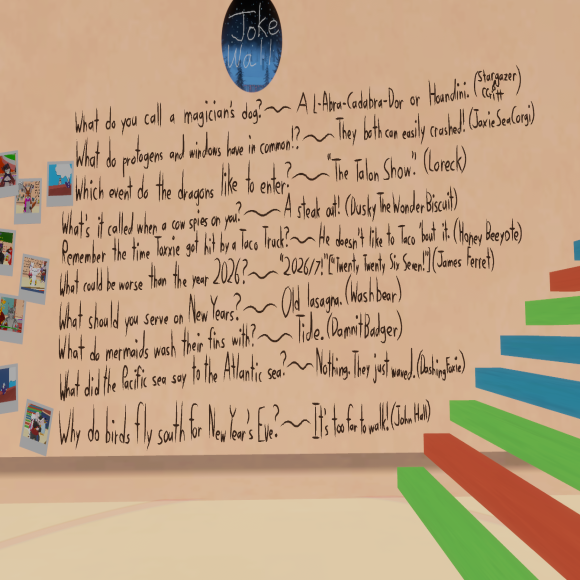 Joke
Wall
What do you call a magician's dog?~ A L-Abra-Cadabra-Dor or Houndini. (Stargazer & CGritt)
What do protogens and windows have in common!?~ They both can easily crashed! (JaxieSeaCorgi)
Which event do the dragons like to enter?~ "The Talon Show." (Loreck)
What's it called when a cow spies on you?~ A steak out! (DuskyTheWonderBiscuit)
Remember the time Taxxie got hit by a Taco Truck?~ He doesn't like to Taco 'bout it. (Honey Beeyote)
What could be worse than the year 2026?~ "2026/7!" ["Twenty Twenty Six Seven!"] (James Ferret)
What should you serve on New Years?~ Old lasagna. (Washbear)
What do mermaids wash their fins with?~ Tide. (DamnitBadger)
What did the Pacific sea say to the Atlantic sea?~ Nothing. They just waved. (DashingFoxie)
Why do birds fly south for New Year's Eve?~ It's too far to walk! (John Hall)